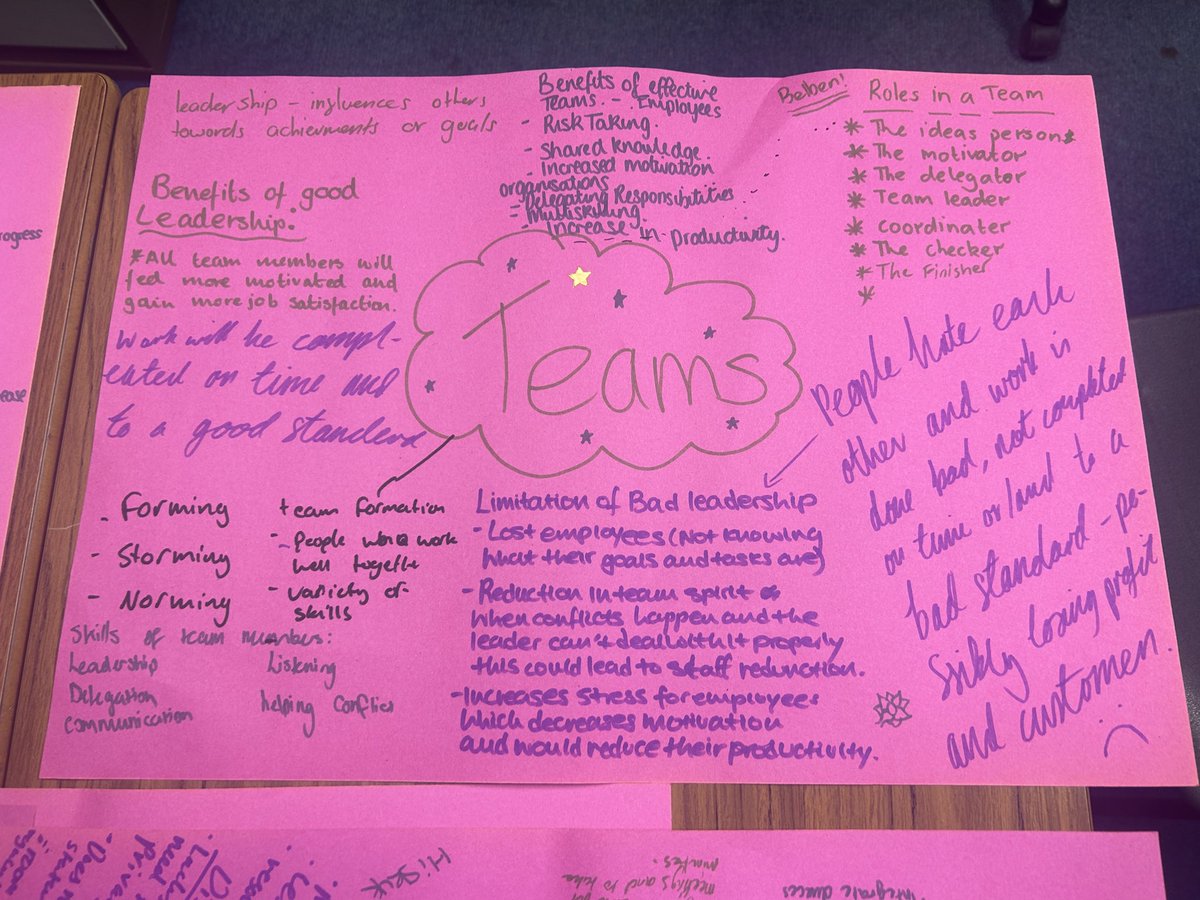 leadership - influences others
towards achievments or goals
Benefits of good
Leadership:
*All team members will
feel more motivated and
gain more job satisfaction.
Work will be compl-
eated on time and
to a good standerd
Benefits of effective
Teams. - Employees
- Risk Taking.
- Shared knowledge.
- Increased motivation
organisations
- Delegating Responsibilities
- Multiskilling.
- Increase in productivity.
Belbin!
Roles in a Team
* The ideas person
* The motivator
* The delegator
* Team leader
* coordinater
* The checker
* The Finisher
*
Teams
People hate each
other and work is
done bad, not completed
on time or/and to a
bad standard - po-
ssibly losing profit
and customers.
- Forming
- Storming
- Norming
team formation
- People work
well together
- variety of
skills
Skills of team members:
Leadership
Delegation
communication
Listening
helping conflict
Limitation of Bad leadership
- Lost employees (Not knowing
what their goals and tasks are)
- Reduction in team spirit
When conflicts happen and the
leader can't deal with it properly
this could lead to staff reduction.
- Increases stress for employees
which decreases motivation
and would reduce their productivity.
rogress
ease
Hi
meetings and to take
minutes.
integrate